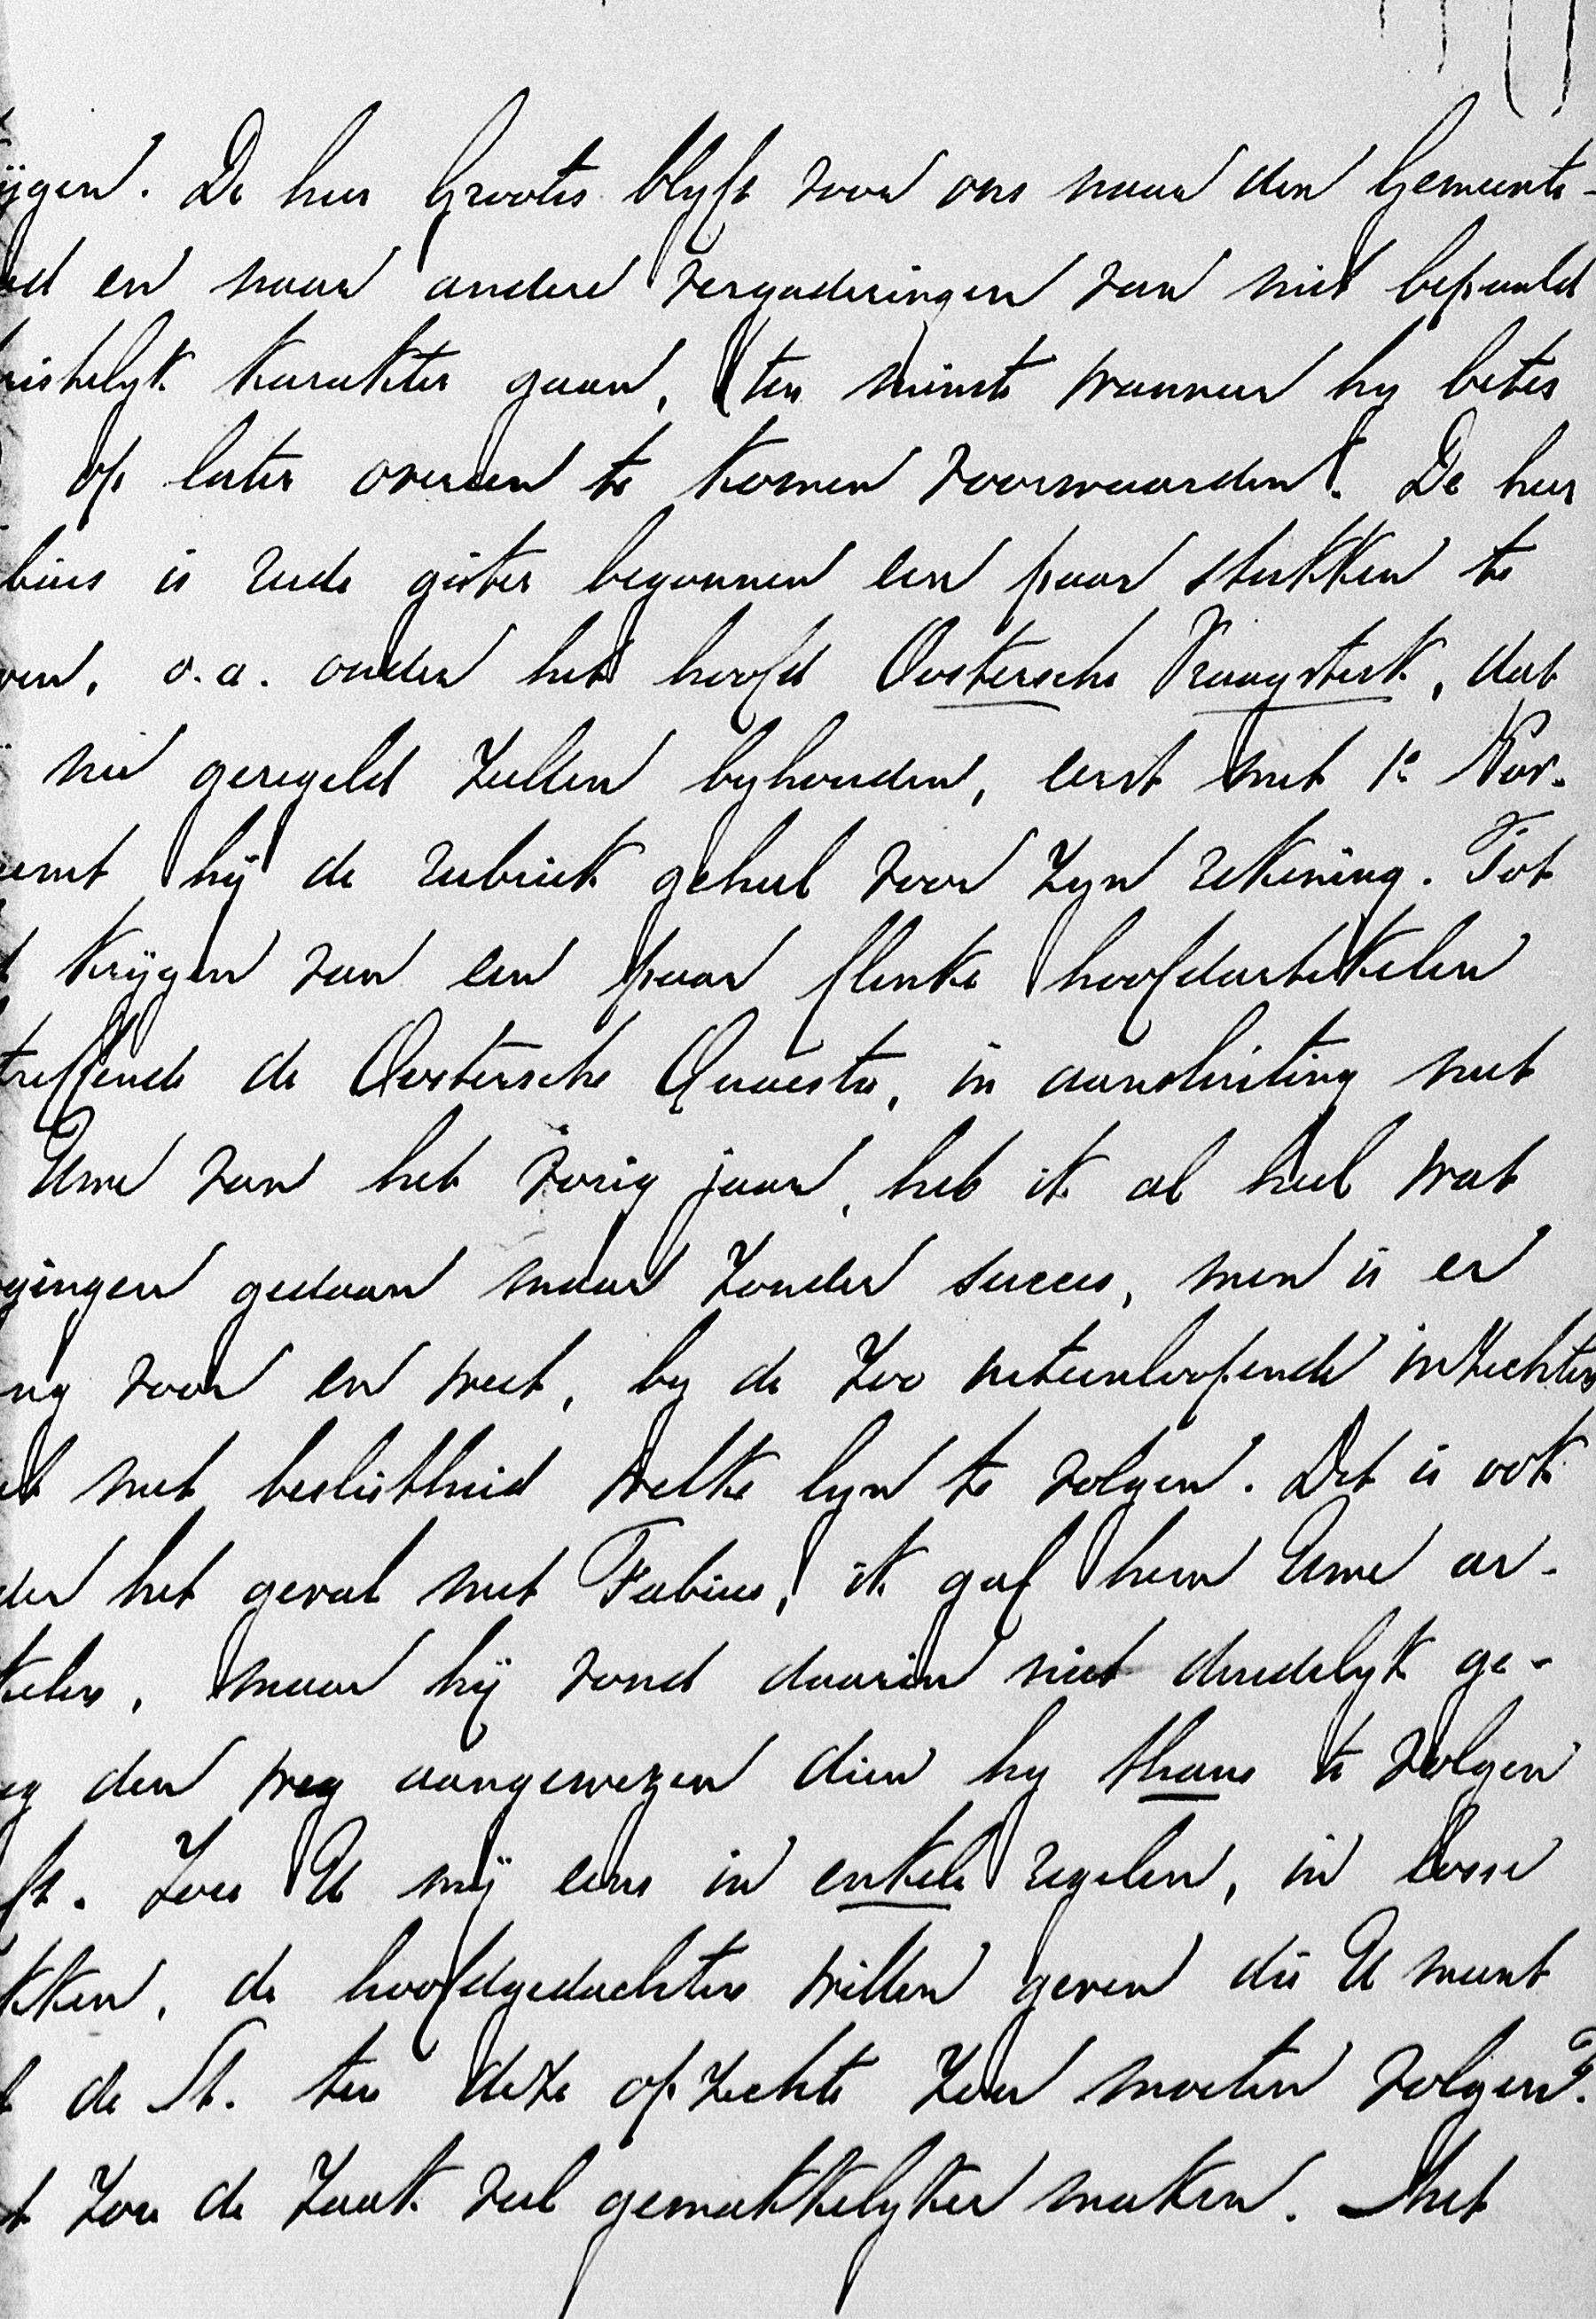 ijgen. De heer Grootes blyft voor ons naar den Gemeente-
ad en naar andere vergaderingen van niet bepaald
ristelyk karakter gaan, (ten minste wanneer hy beter
op later overeen te komen voorwaarden). De heer
bius is reeds gister begonnen een paar stukken te
ven, o.a. onder het hoofd Oostersche Vraagstuk, dat
nu geregeld zullen byhouden, eerst met 1e Nov.
eemt hij de rubriek geheel voor zyn rekening. Tot
krijgen van een paar flinke hoofdartikelen
treffende de Oostersche Quaestie, in aansluiting met
Uwe van het vorig jaar, heb ik al heel wat
gingen gedaan maar zonder succes, men is er
ng voor en weet, by de zoo uiteenloopende inzichten
et met beslistheid welke lyn te volgen. Dit is ook
der het geval met Fabius, ik gaf hem Uwe ar-
kelen, maar hij vond daarin niet duidelyk ge-
eg den weg aangewezen dien hy thans te volgen
ft. Zou U mij eens in enkele regelen, in losse
kken, de hoofdgedachten willen geven die U meent
de St. ten deze opzichte zou moeten volgen?
t zou de zaak veel gemakkelyker maken. Met